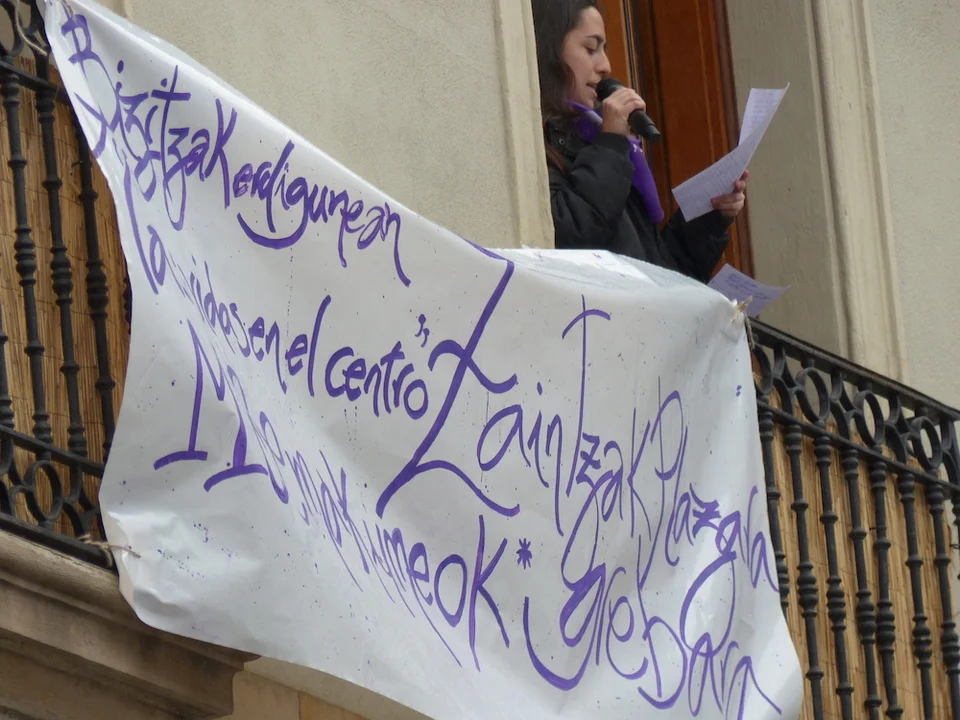 Bizitzak erdigunean
la vidas en el centro"
Zaintzak Plazara
Emakumeok* greBara